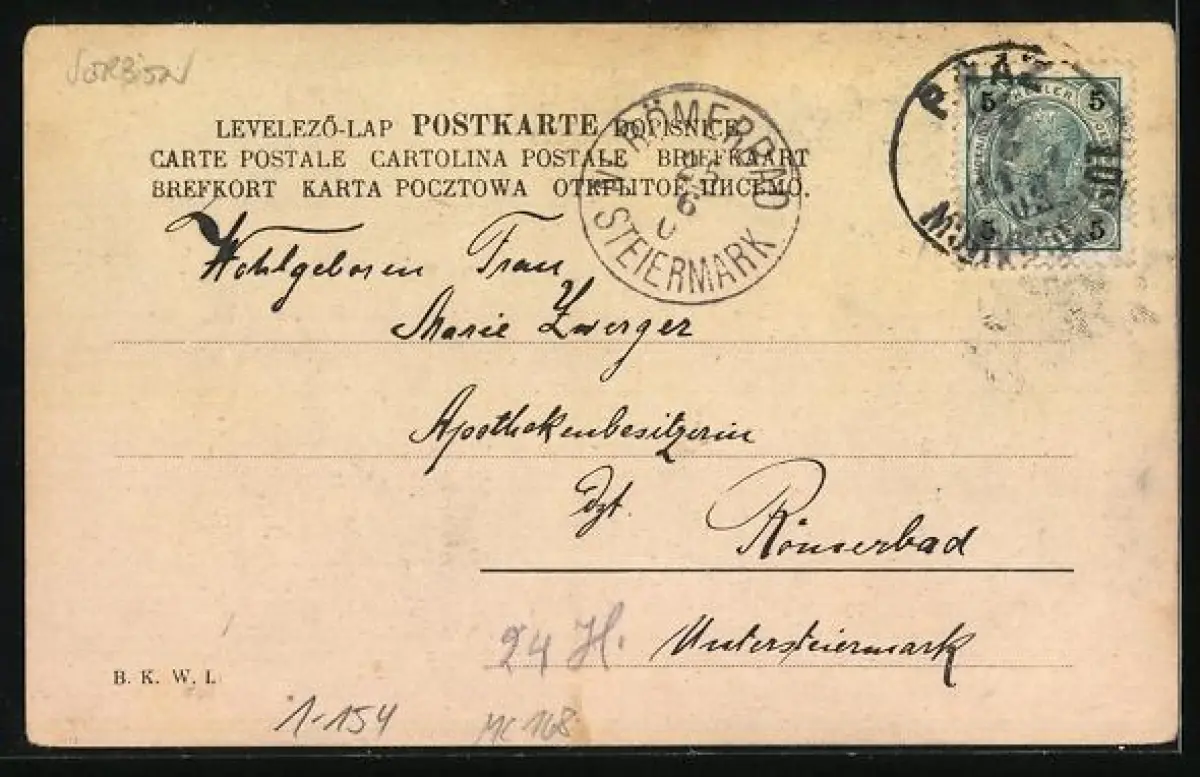 LEVELEZŐ-LAP POSTKARTE DOPISNICE
CARTE POSTALE CARTOLINA POSTALE BRIEFKAART
BREFKORT KARTA POCZTOWA ОТКРЫТОЕ ПИСЬМО.
RÖMERBAD
STEIERMARK
5 HELLER 5
5 5
Wohlgeboren Frau
Marie Zwerger
Apothekenbesitzerin
Dzt. Römerbad
Untersteiermark
24 H.
B. K. W. I.
1-154
MC 168